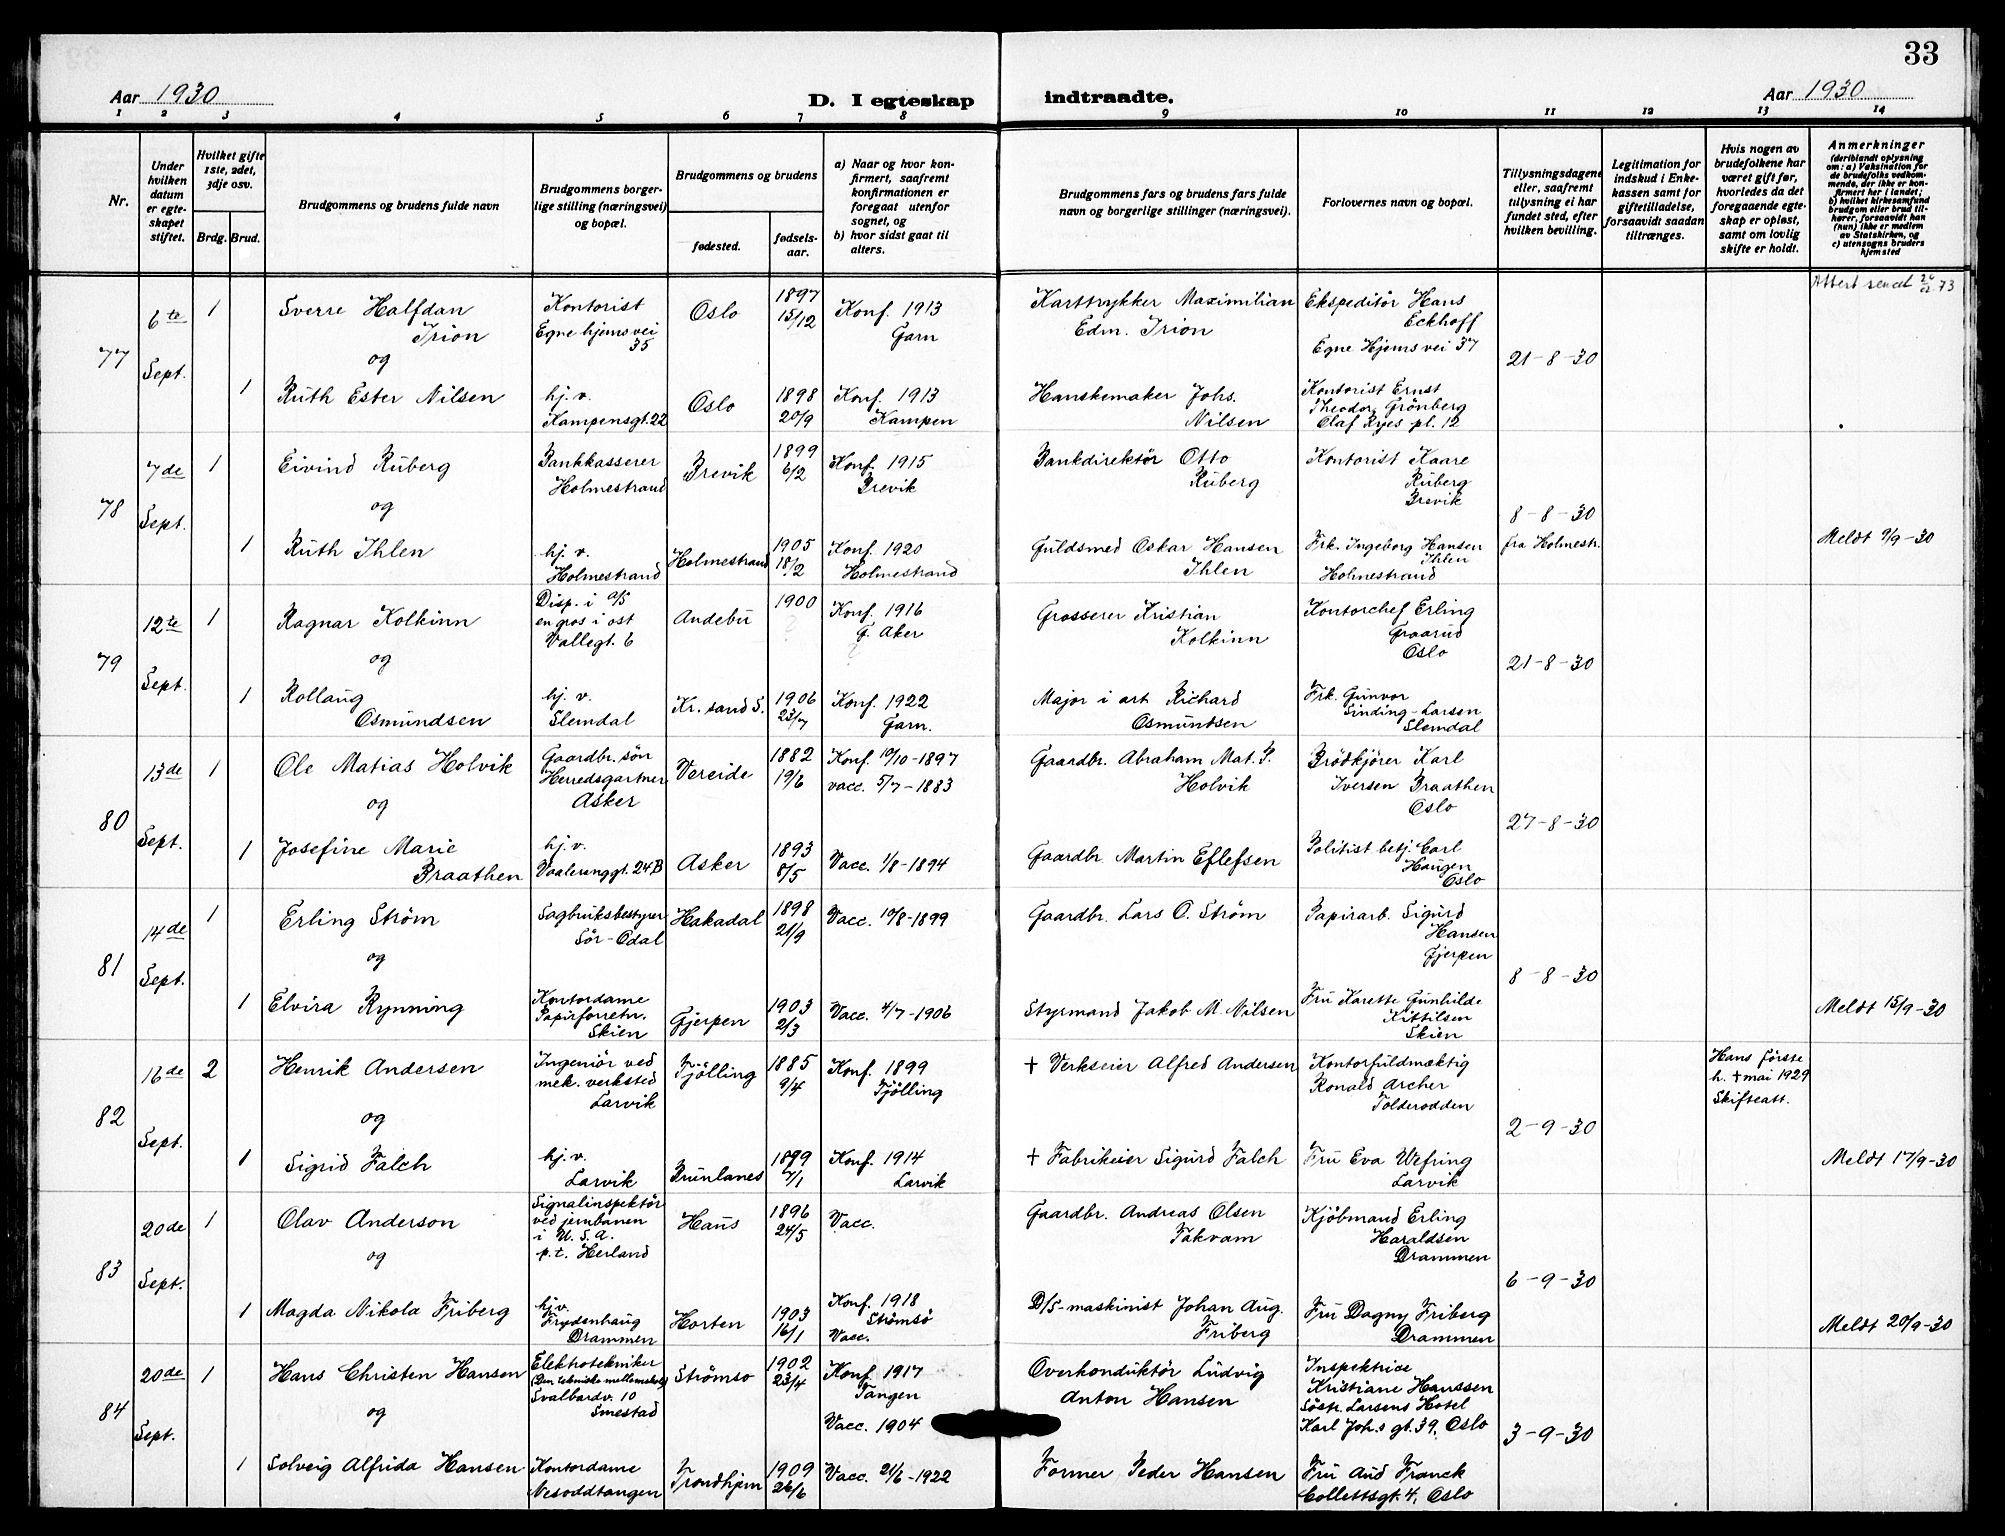 33
Aar 1930
D. I egteskap
indtraadte.
Aar 1930
1 2 3 4 5 6 7 8 9 10 11 12 13 14
Nr.
Under
hvilken
datum
er egte-
skapet
stiftet.
Hvilket gifte
1ste, 2det,
3dje osv.
Brdg.
Brud.
Brudgommens og brudens fulde navn
Brudgommens borger-
lige stilling (næringsvei)
og bopæl.
Brudgommens og brudens
fødested.
fødsels-
aar.
a) Naar og hvor kon-
firmert, saafremt
konfirmationen er
foregaat utenfor
sognet, og
b) hvor sidst gaat til
alters.
Brudgommens fars og brudens fars fulde
navn og borgerlige stillinger (næringsvei).
Forlovernes navn og bopæl.
Tillysningsdagene
eller, saafremt
tillysning ei har
fundet sted, efter
hvilken bevilling.
Legitimation for
indskud i Enke-
kassen samt for
giftetilladelse,
forsaavidt saadan
tiltrænges.
Hvis nogen av
brudefolkene har
været gift før,
hvorledes da det
foregaaende egte-
skap er opløst,
samt om lovlig
skifte er holdt.
Anmerkninger
(deriblandt oplysning
om: a) Vaksination for
de brudefolks vedkom-
mende, der ikke er kon-
firmert her i landet;
b) hvilket kirkesamfund
brudgom eller brud til-
hører, forsaavidt han
(hun) ikke er medlem
av Statskirken, og
c) utensogns bruders
hjemsted
77
6te
Sept.
1
Sverre Halfdan
Irion
og
Kontorist
Egne hjems vei
35
Oslo
1897
15/12
Konf. 1913
Garn
Karttrykker Maximilian
Edm. Irion
Ekspeditör Hans
Eckhoff
Egne Hjems vei 37
21-8-30
Attest sendt 73
1
Ruth Ester Nilsen
hj. v.
Kampensgt. 22
Oslo
1898
20/9
Konf. 1913
Kampen
Hanskemaker Johs.
Nilsen
Kontorist Ernst
Theodor Grönberg
Olaf Ryes pl. 12
78
7de
Sept.
1
Eivind Ruberg
og
Bankkasserer
Holmestrand
Brevik
1899
6/2
Konf. 1915
Brevik
Bankdirektör Otto
Ruberg
Kontorist Kaare
Ruberg
Brevik
8-8-30
fra Holmestr.
1
Ruth Ihlen
hj. v.
Holmestrand
Holmestrand
1905
18/2
Konf. 1920
Holmestrand
Guldsmed Oskar Hansen
Ihlen
Frk. Ingeborg Hansen
Ihlen
Holmestrand
Meldt 9/9-30
79
12te
Sept.
1
Ragnar Kolkinn
og
Disp. i a/s
en gros i ost
Vallegt. 6
Andebu
1900
?
Konf. 1916
G. Aker
?
Grosserer Kristian
Kolkinn
Kontorchef Erling
Graarud
Oslo
21-8-30
1
Rollaug
Osmundsen
hj. v.
Slemdal
Kr. sand S.
1906
23/7
Konf. 1922
Garn.
Major i art Richard
Osmundsen
Frk. Gunvor
Sinding-Larsen
Slemdal
80
13de
Sept.
1
Ole Matias Holvik
og
Gaardbr. sön
Herredsgartner
Asker
Vereide
1882
19/6
Konf. 10/10-1897
vacc. 5/7-1883
Gaardbr. Abraham Mat. P.
Holvik
Brödkjörer Karl
Iversen Braathen
Oslo
27-8-30
1
Josefine Marie
Braathen
hj. v.
Vaalerenggt. 24B
Asker
1893
8/5
Vacc. 1/8-1894
Gaardbr. Martin Eflefsen
Politist betj. Carl
Haugen
Oslo
81
14de
Sept.
1
Erling Ström
og
Sagbruksbestyrer
Sör-Odal
Hakadal
1898
21/9
Vacc. 10/8-1899
Gaardbr. Lars O. Ström
Papirarb. Sigurd
Hansen
Gjerpen
8-8-30
1
Elvira Rynning
Kontordame
Papirforretn.
Skien
Gjerpen
1903
2/3
Vacc. 4/7-1906
Styrmand Jakob M. Nilsen
Fru Karette Gunhilde
Kittilsen
Skien
Meldt 15/9-30
82
16de
Sept.
2
Henrik Andersen
og
Ingeniör ved
mek. verksted
Larvik
Tjölling
1885
9/4
Konf. 1899
Tjölling
† Verkseier Alfred Andersen
Kontorfuldmæktig
Ronald Archer
Tolderodden
2-9-30
Hans förste
h. † mai 1929
Skifteatt.
1
Sigrid Falch
hj. v.
Larvik
Brunlanes
1899
7/1
Konf. 1914
Larvik
† Fabrikeier Sigurd Falch
Fru Eva Wefring
Larvik
Meldt 17/9-30
83
20de
Sept.
1
Olav Anderson
og
Signalinspektör
ved jernbanen
i U. S. A.
p.t. Herland
Haus
1896
24/5
Vacc.
Gaardbr. Andreas Olsen
Takvam
Kjöbmand Erling
Haraldsen
Drammen
6-9-30
1
Magda Nikola Friberg
hj. v.
Frydenhaug
Drammen
Horten
1903
16/1
Konf. 1918
Strömsö
Vacc.
D/S-maskinist Johan Aug.
Friberg
Fru Dagny Friberg
Drammen
Meldt 20/9-30
84
20de
Sept.
1
Hans Christen Hansen
og
Elektrotekniker
(Den tekniske mellemskole)
Svalbardv. 10
Smestad
Strömsö
1902
23/4
Konf. 1917
Tangen
Vacc. 1904
Overkonduktör Ludvig
Anton Hansen
Inspektrice
Kristiane Hanssen
Söstr. Larsens Hotel
Karl Joh.s gt. 39, Oslo
3-9-30
1
Solveig Alfrida Hansen
Kontordame
Nesoddtangen
Trondhjem
1909
26/6
Vacc. 21/6-1922
Former Peder Hansen
Fru Aud Franck
Collettsgt. 4, Oslo